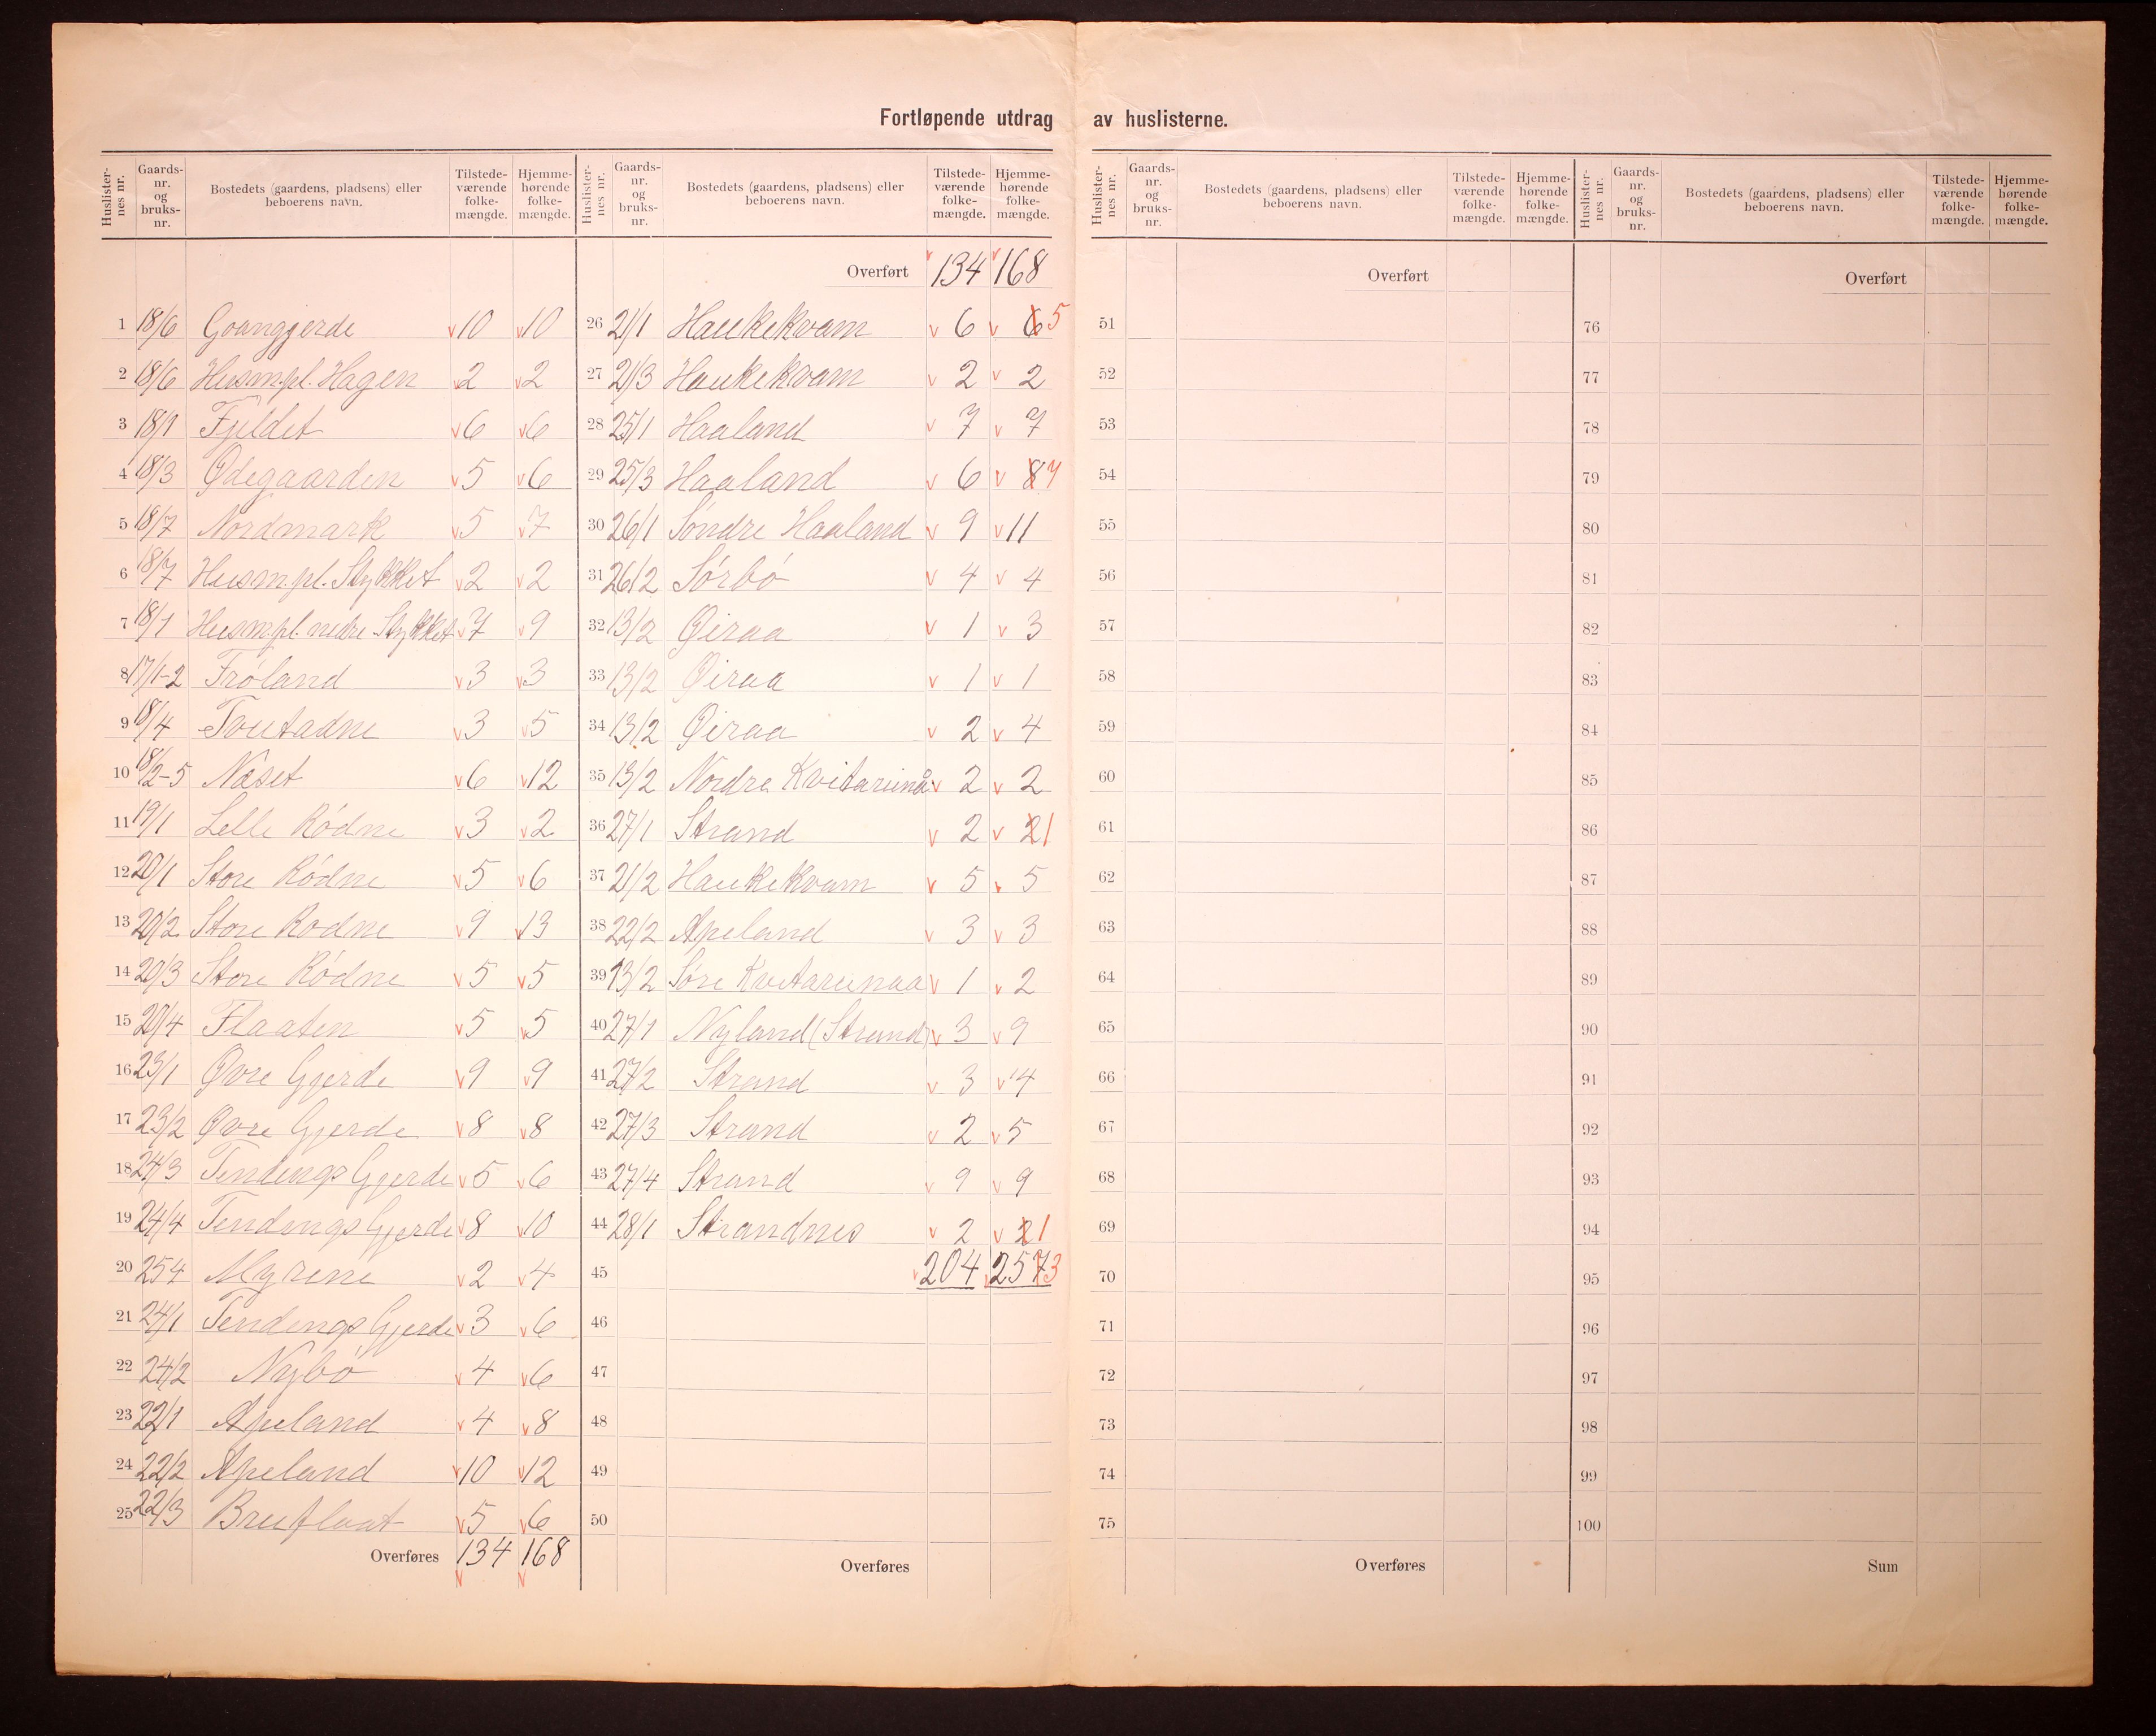 Fortløpende utdrag av huslisterne.
Huslisternes nr. | Gaardsnr. og bruksnr. | Bostedets (gaardens, pladsens) eller beboerens navn. | Tilstedeværende folkemængde. | Hjemmehørende folkemængde.
1 18/6 Goanggjerde 10 10
2 18/6 Husm.pl. Hagen 2 2
3 18/1 Fjeldet 6 6
4 18/3 Ødegaarden 5 6
5 18/7 Nordmark 5 7
6 18/7 Husm.pl. Stykket 2 2
7 18/1 Husm.pl. nedre Stykket 7 9
8 17/1-2 Fróland 3 3
9 18/4 Toutadne 3 5
10 18/2-5 Næset 6 12
11 19/1 Lelle Ródne 3 2
12 20/1 Store Ródne 5 6
13 20/2 Store Rodne 9 13
14 20/3 Store Ródne 5 5
15 20/4 Flaaten 5 5
16 23/1 Øvre Gjerde 9 9
17 23/2 Øvre Gjerde 8 8
18 24/3 Tendings Gjerde 5 6
19 24/4 Tendings Gjerde 8 10
20 254 Myrene 2 4
21 24/1 Tendings Gjerde 3 6
22 24/2 Nybó 4 6
23 22/1 Apeland 4 8
24 22/2 Apeland 10 12
25 22/3 Bruflaat 5 6
Overføres 134 168
Huslisternes nr. | Gaardsnr. og bruksnr. | Bostedets (gaardens, pladsens) eller beboerens navn. | Tilstedeværende folkemængde. | Hjemmehørende folkemængde.
Overført 134 168
26 21/1 Haukekvam 6 6 5
27 21/3 Haukekvam 2 2
28 25/1 Haaland 7 7
29 25/3 Haaland 6 8 7
30 26/1 Søndre Haaland 9 11
31 26/2 Sórbó 4 4
32 13/2 Øiraa 1 3
33 13/2 Øiraa 1 1
34 13/2 Øiraa 2 4
35 13/2 Nordre Kvitarunå 2 2
36 27/1 Strand 2 2 1
37 21/2 Haukekvam 5 5
38 22/2 Apeland 3 3
39 13/2 Søre Kvitarunaa 1 2
40 27/1 Nyland (Strand) 3 9
41 27/2 Strand 3 4
42 27/3 Strand 2 5
43 27/4 Strand 9 9
44 28/1 Strandnes 2 2 1
45 204 257 3
46
47
48
49
50
Overføres
Huslisternes nr. | Gaardsnr. og bruksnr. | Bostedets (gaardens, pladsens) eller beboerens navn. | Tilstedeværende folkemængde. | Hjemmehørende folkemængde.
Overført
51
52
53
54
55
56
57
58
59
60
61
62
63
64
65
66
67
68
69
70
71
72
73
74
75
Overføres
Huslisternes nr. | Gaardsnr. og bruksnr. | Bostedets (gaardens, pladsens) eller beboerens navn. | Tilstedeværende folkemængde. | Hjemmehørende folkemængde.
Overført
76
77
78
79
80
81
82
83
84
85
86
87
88
89
90
91
92
93
94
95
96
97
98
99
100
Sum